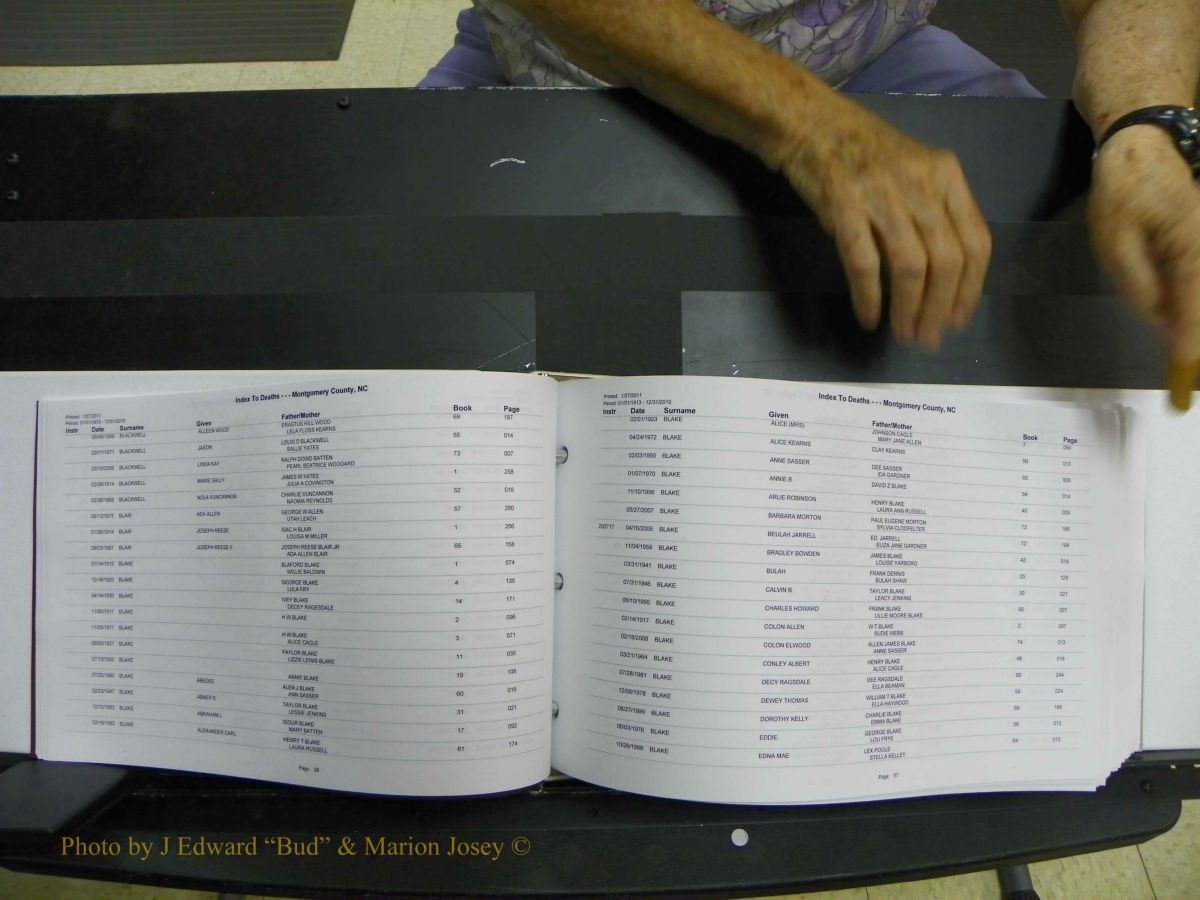 Index To Deaths - - - Montgomery County, NC
Printed: 1/27/2011
Period: 01/01/1913 - 12/31/2010
Instr Date Surname Given Father/Mother Book Page
BLACKWELL ALLEEN WOOD ERASTUS HILL WOOD 69 187
LELA FLOSS KEARNS
BLACKWELL JASON LOUIS D BLACKWELL 55 014
SALLIE YATES
BLACKWELL LINDA KAY RALPH DOWD BATTEN 73 007
PEARL BEATRICE WOODARD
BLACKWELL MARIE SALLY JAMES W YATES 1 258
JULIA A COVINGTON
BLACKWELL NOLA VUNCANNON CHARLIE VUNCANNON 52 016
NAOMIA REYNOLDS
BLAIR ADA ALLEN GEORGE W ALLEN 57 280
UTAH LEACH
BLAIR JOSEPH REESE ISAC H BLAIR 1 256
LOUISA M MILLER
BLAIR JOSEPH REESE II JOSEPH REESE BLAIR JR 65 158
ADA ALLEN BLAIR
BLAKE BLAFORD BLAKE 1 074
WILLIE BALDWIN
BLAKE GEORGE BLAKE 4 135
LULA FRY
BLAKE IVEY BLAKE 14 171
DECEY RAGESDALE
BLAKE H W BLAKE 2 096
BLAKE H W BLAKE 3 071
ALICE CAGLE
BLAKE FAYLOR BLAKE 11 035
LIZZIE LEWIS BLAKE
BLAKE 19 108
ANNIE BLAKE
BLAKE ABEDEE ALEN J BLAKE 60 016
ANN SASSER
BLAKE ABNER E TAYLOR BLAKE 31 021
LESSIE JENKINS
BLAKE ABRAHAM L ISOUR BLAKE 17 092
MARY BATTEN
BLAKE ALEXANDER CARL HENRY T BLAKE 61 174
LAURA RUSSELL
Page 56
Index To Deaths - - - Montgomery County, NC
Printed: 1/27/2011
Period: 01/01/1913 - 12/31/2010
Instr Date Surname Given Father/Mother Book Page
02/01/1923 BLAKE ALICE (MRS) JOHNSON CAGLE
MARY JANE ALLEN
04/24/1972 BLAKE ALICE KEARNS CLAY KEARNS 56 013
02/03/1990 BLAKE ANNE SASSER DEE SASSER
IDA GARDNER
01/07/1970 BLAKE ANNIE B DAVID Z BLAKE 54 014
11/10/1956 BLAKE ARLIE ROBINSON HENRY BLAKE 40 009
LAURA ANN RUSSELL
05/27/2007 BLAKE BARBARA MORTON PAUL EUGENE MORTON 73
SYLVIA CLODFELTER
200717 04/16/2005 BLAKE BEULAH JARRELL ED JARRELL 72 198
ELIZA JANE GARDNER
11/04/1959 BLAKE BRADLEY BOWDEN JAMES BLAKE 43 018
LOUISE YARBORO
03/31/1941 BLAKE BULAH FRANK DENNIS 25 128
BULAH SHAW
07/31/1945 BLAKE CALVIN B TAYLOR BLAKE 30 021
LEACY JENKINS
06/10/1990 BLAKE CHARLES HOWARD FRANK BLAKE
LILLIE MOORE BLAKE
02/14/1917 BLAKE COLON ALLEN W T BLAKE 2
SUDIE WEBB
02/18/2008 BLAKE COLON ELWOOD ALLEN JAMES BLAKE 74 013
ANNE SASSER
03/21/1964 BLAKE CONLEY ALBERT HENRY BLAKE 48 016
ALICE CAGLE
07/28/1981 BLAKE DECY RAGSDALE DEE RAGSDALE 60 244
ELLA BEAMAN
12/08/1978 BLAKE DEWEY THOMAS WILLIAM T BLAKE 024
ELLA HAYWOOD
06/27/1999 BLAKE DOROTHY KELLY CHARLIE BLAKE
EMMA BLAKE
06/03/1976 BLAKE EDDIE GEORGE BLAKE 013
LOU FRYE
10/26/1968 BLAKE EDNA MAE LEX POOLE 54 012
STELLA KELLEY
Page 57
Photo by J Edward “Bud” & Marion Josey ©